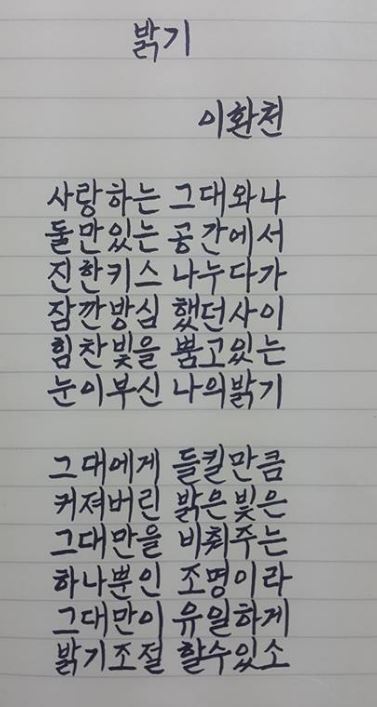 밝기
이환천
사랑하는 그대와나
둘만있는 공간에서
진한키스 나누다가
잠깐방심 했던사이
힘찬빛을 뿜고있는
눈이부신 나의밝기
그대에게 들킬만큼
커져버린 밝은빛은
그대만을 비춰주는
하나뿐인 조명이라
그대만이 유일하게
밝기조절 할수있소